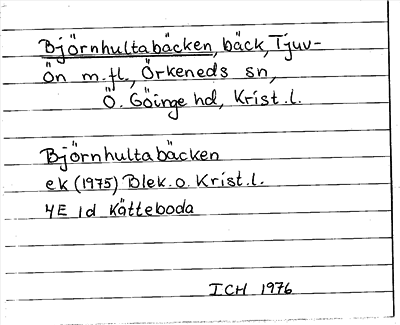 Björnhultabäcken, bäck, Tjuv-
ön m.fl., Örkeneds sn,
Ö. Göinge hd, Krist.l.
Björnhultabäcken
ek (1975) Blek. o. Krist.l.
4E 1d Kätteboda
ICH 1976